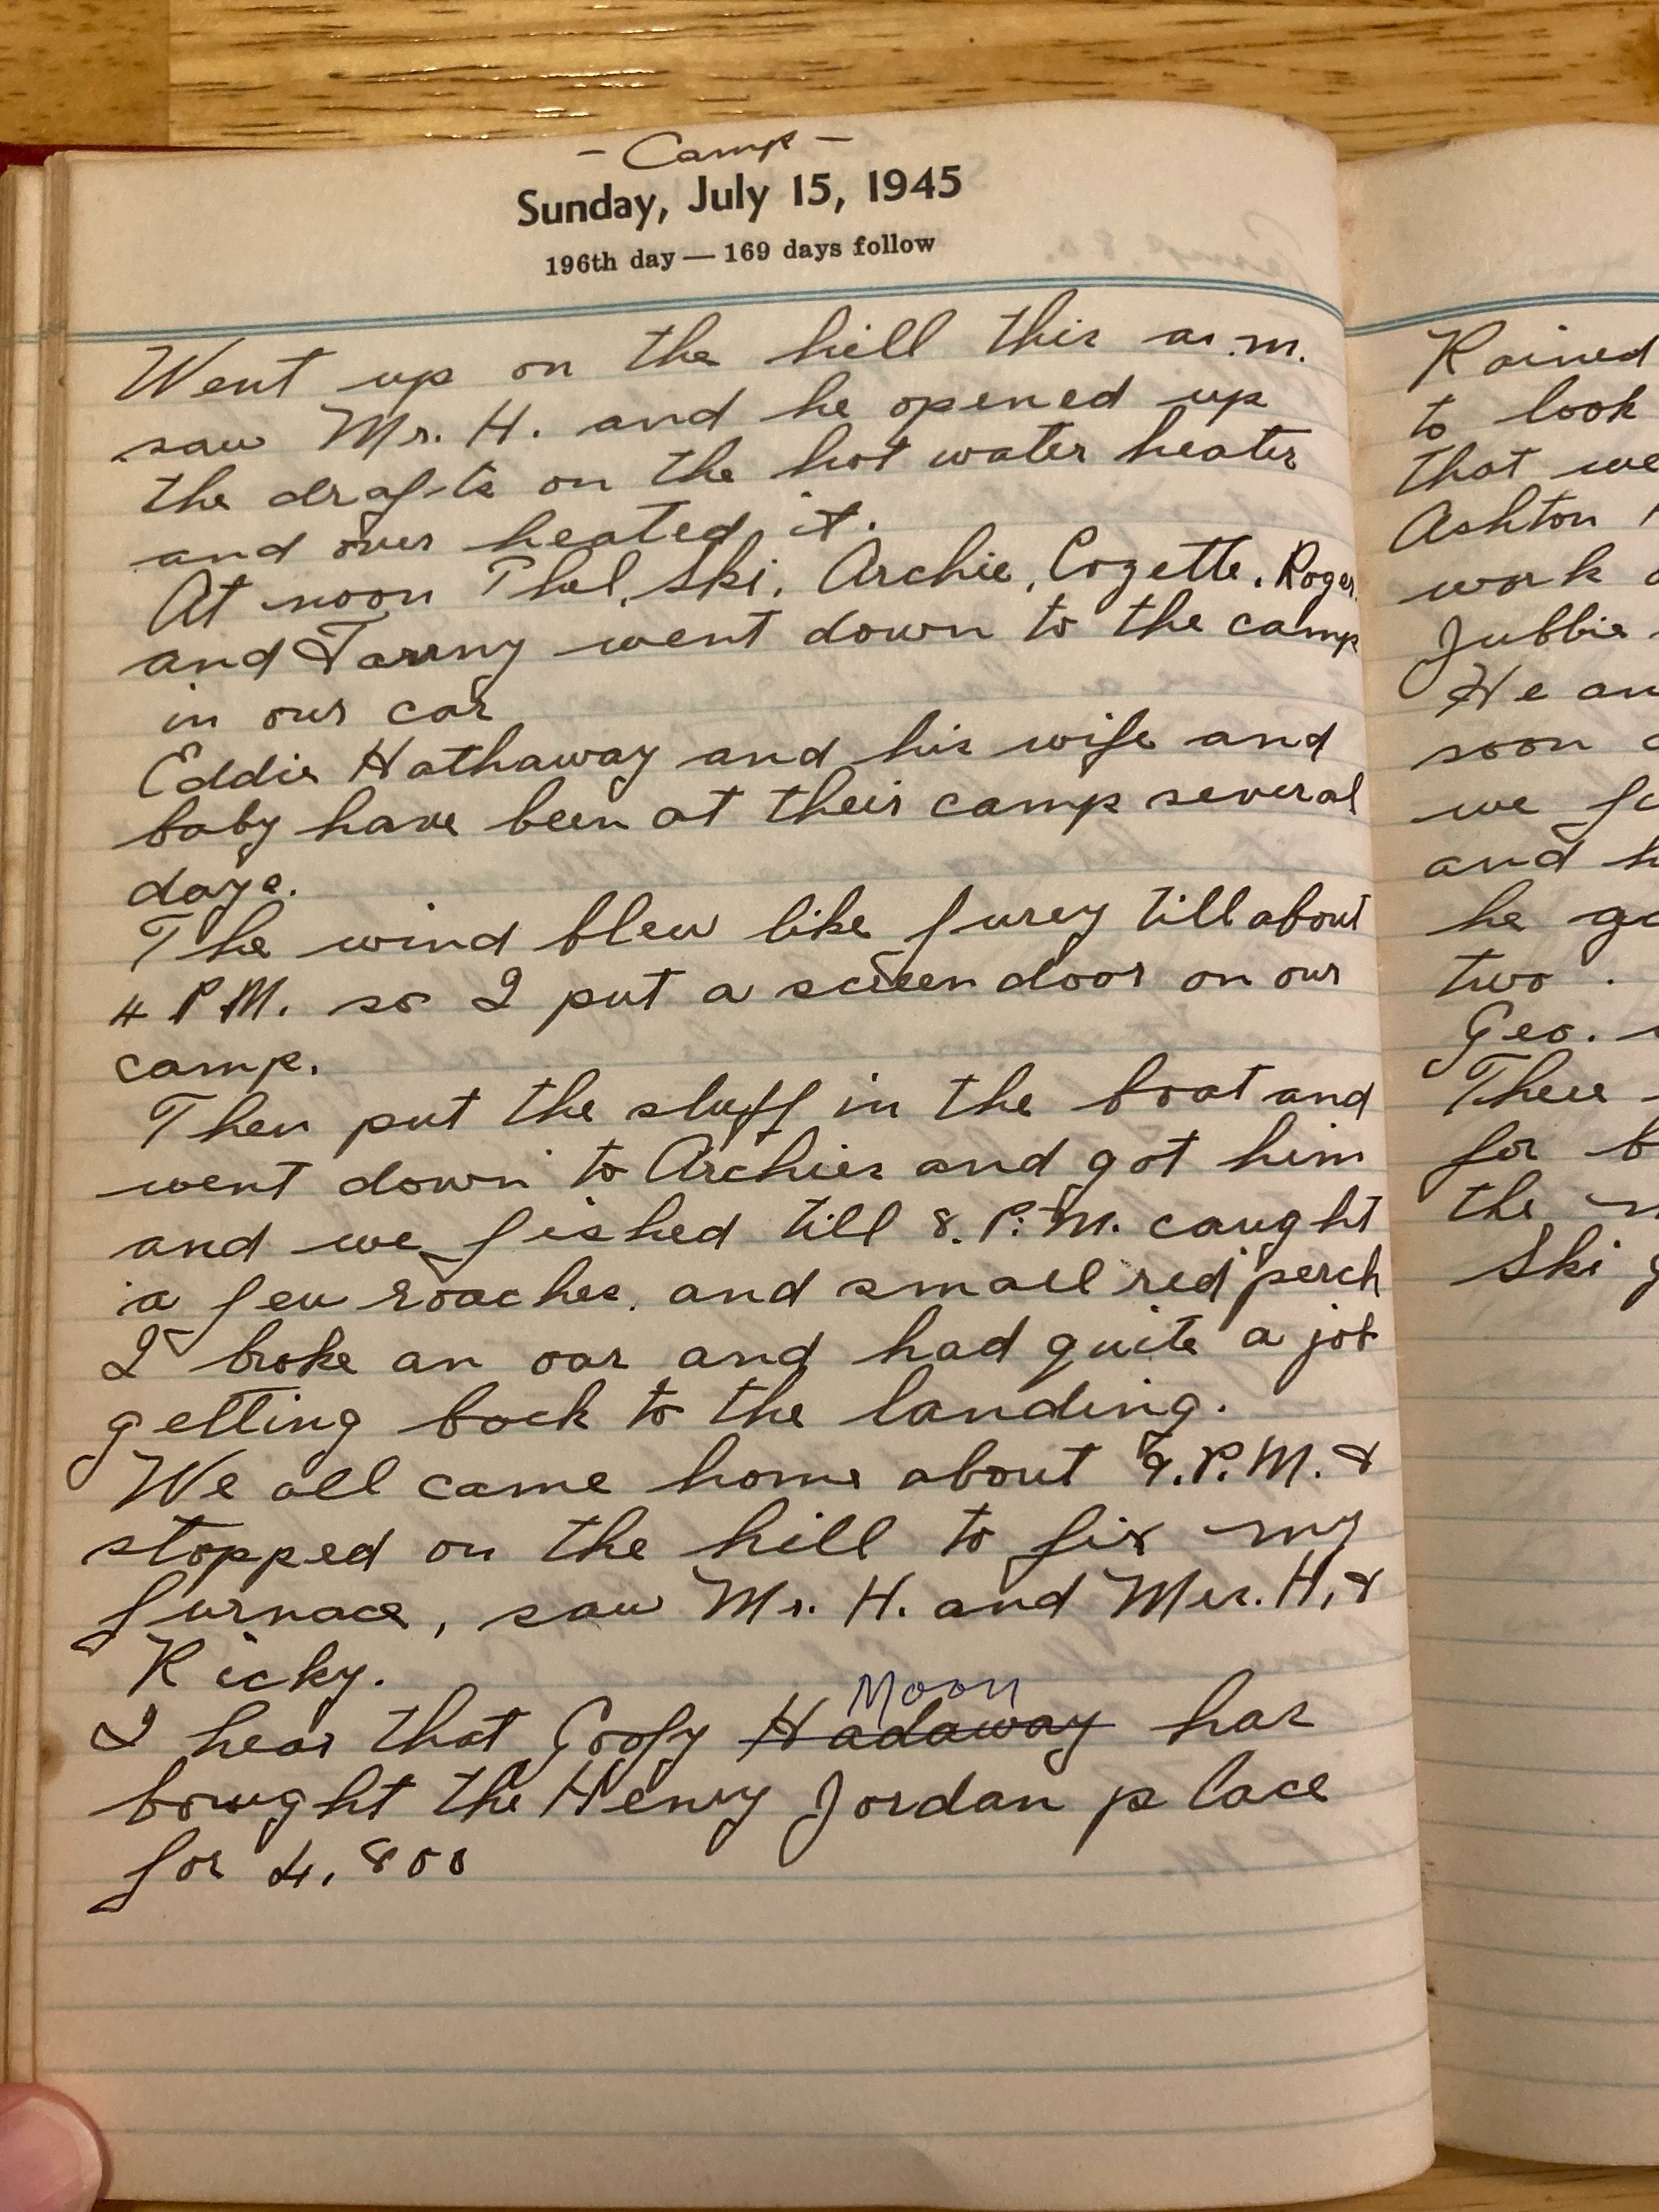 - Camp -
Sunday, July 15, 1945
196th day — 169 days follow
Went up on the hill this a.m.
saw Mr. H. and he opened up
the drafts on the hot water heater
and over heated it.
At noon Thel, Ski, Archie, Cozette, Roger
and went down to the camp
in our car
Eddie Hathaway and his wife and
baby have been at their camp several
days.
The wind blew like furey till about
4 P.M. so I put a screen door on our
camp.
Then put the stuff in the boat and
went down to Archies and got him
and we fished till 8. P.M. caught
a few roaches, and small red perch
I broke an oar and had quite a job
getting back to the landing.
We all came home about 9. P.M. &
stopped on the hill to fix my
furnace, saw Mr. H. and Mrs. H, &
Ricky.
Moon
I hear that Goofy Hadaway has
bought the Henry Jordan place
for 4,800
Rained
to look
that we
Ashton
work
Jubbie
He an
soon
we
and h
he go
two.
Geo.
There
for b
the
Ski g